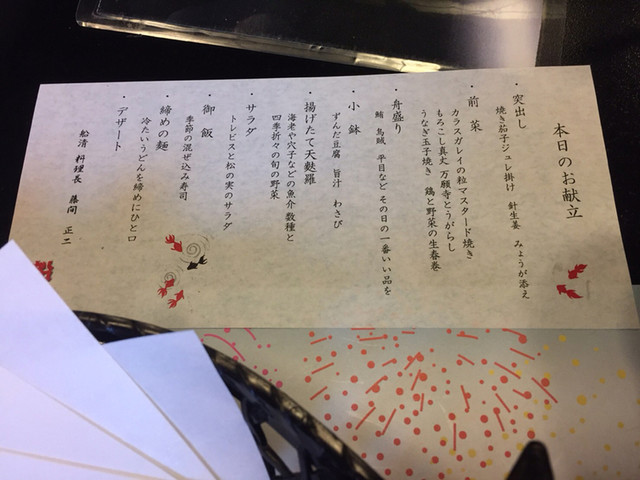 本日のお献立
・突出し
焼き茄子ジュレ掛け 針生姜 みょうが添え
・前菜
カラスガレイの粒マスタード焼き
もろこし真丈 万願寺とうがらし
うなぎ玉子焼き 鶏と野菜の生春巻
・舟盛り
鮪 烏賊 平目など その日の一番いい品を
・小鉢
ずんだ豆腐 旨汁 わさび
・揚げたて天麩羅
海老や穴子などの魚介数種と
四季折々の旬の野菜
・サラダ
トレビスと松の実のサラダ
・御飯
季節の混ぜ込み寿司
・締めの麺
冷たいうどんを締めにひと口
・デザート
船清 料理長 藤間 正二